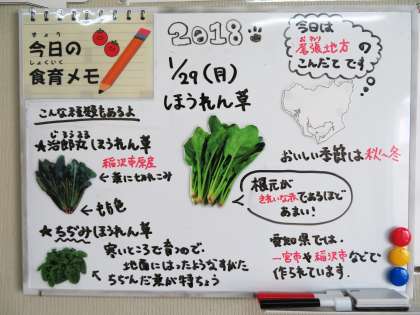 きょう
今日の
しょくいく
食育メモ
2018
1/29(月)
ほうれん草
今日は
おわり
尾張地方の
こんだてです
こんな種類もあるよ
じろうまる
★治郎丸ほうれん草
稲沢市原産
←葉に切れこみ
←もも色
★ちぢみほうれん草
寒いところで育つので、
地面にはったようなすがた
ちぢんだ葉が特ちょう
おいしい季節は秋〜冬
根元が
きれいな赤であるほど
あまい!
愛知県では、
一宮市や稲沢市などで
作られています.